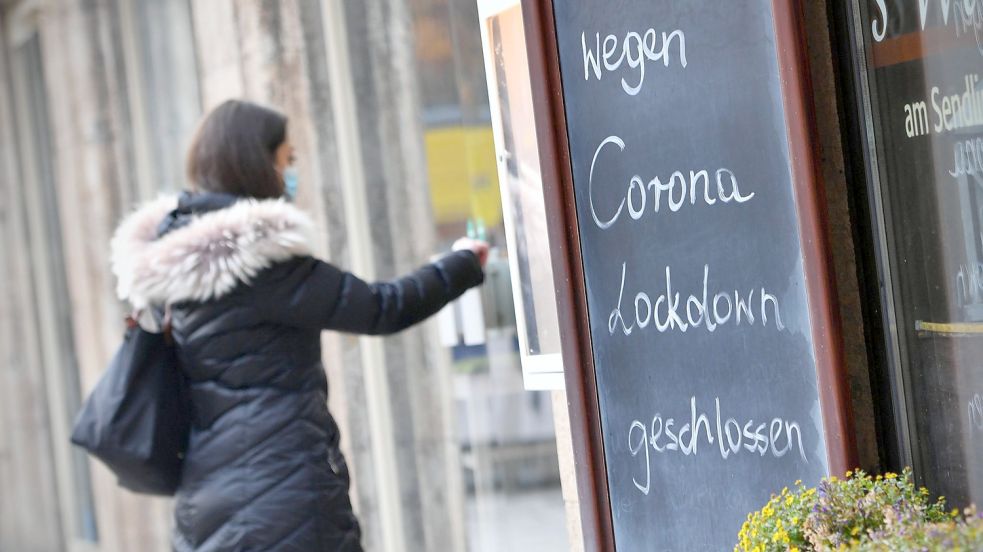 wegen
Corona
Lockdown
geschlossen
am Sendli